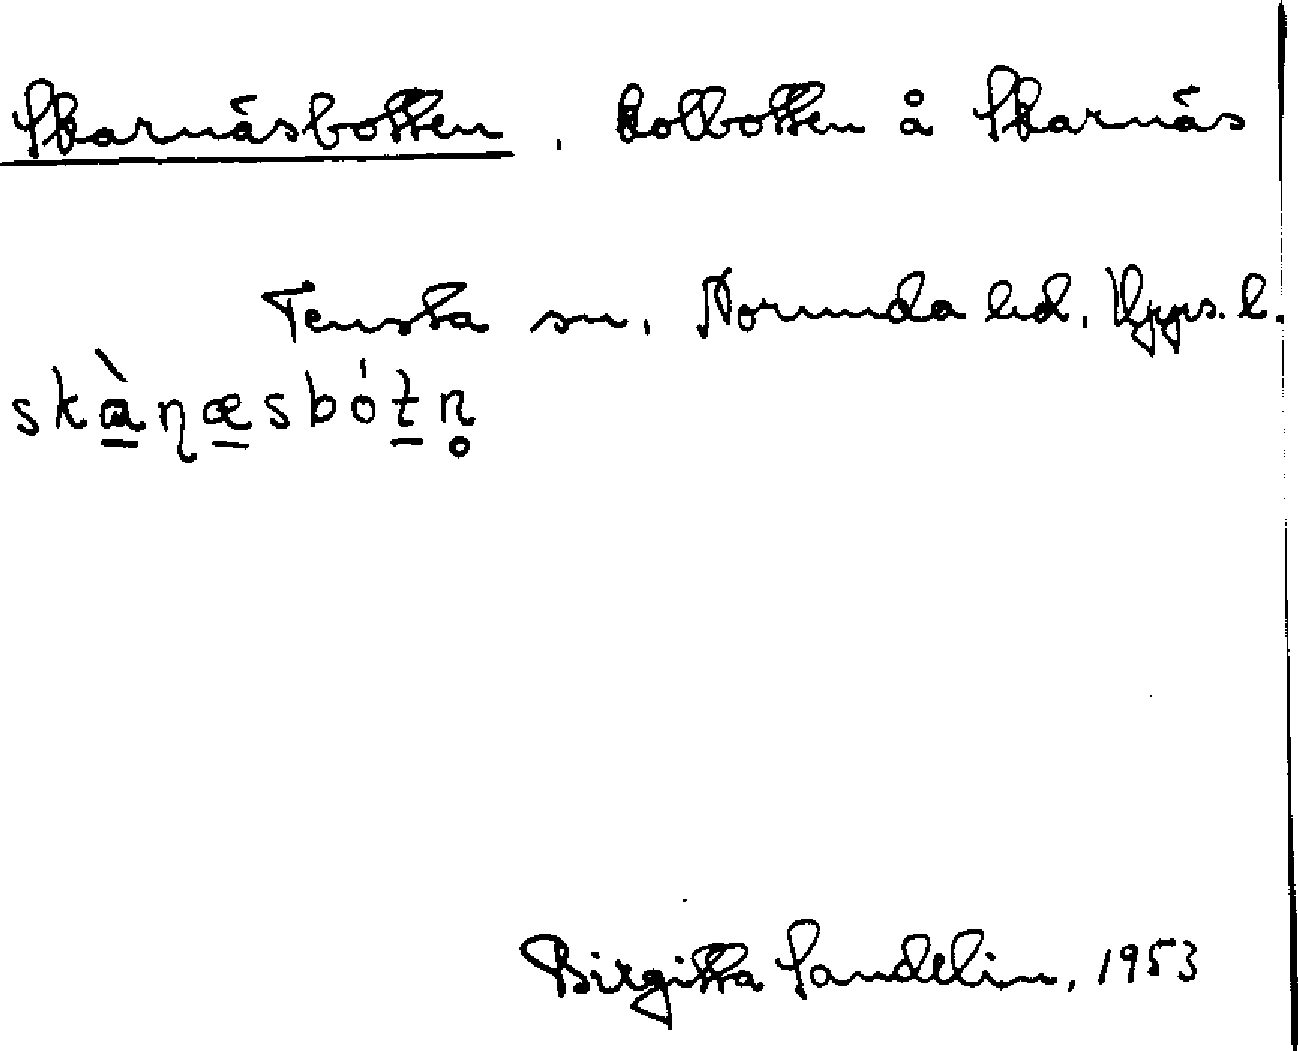 Skarnäsbotten. kolbotten å Skarnäs
Tensta sn, Norunda hd, Upps. l.
skà̱ɳæ̱sbót̠ɳ̥
Birgitta Sandelin, 1953